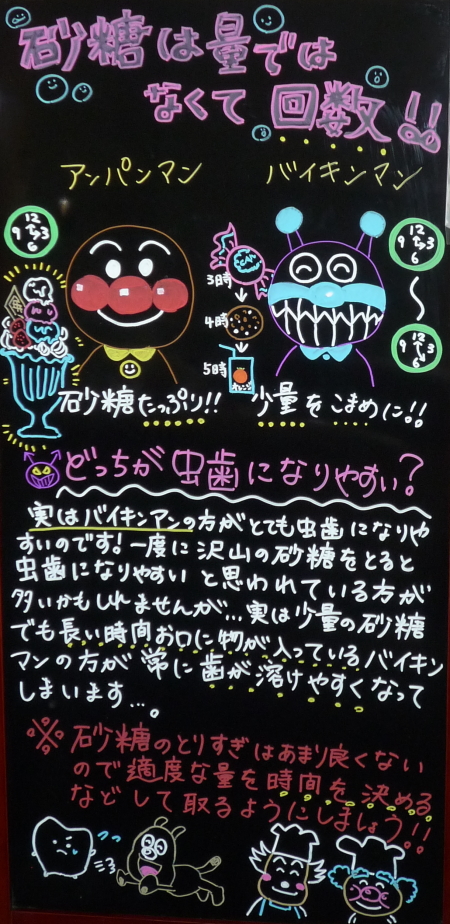 砂糖は量では
なくて 回数!!
アンパンマン
バイキンマン
12
9 3
6
12
9 3
6
3時
4時
5時
12
9 3
6
砂糖たっぷり!!
少量をこまめに!!
どっちが虫歯になりやすい?
実はバイキンマンの方がとても虫歯になりや
すいのです!一度に沢山の砂糖をとると
虫歯になりやすいと思われている方が
多いかもしれませんが...実は少量の砂糖
でも長い時間お口に物が入っているバイキン
マンの方が常に歯が溶けやすくなって
しまいます...。
※砂糖のとりすぎはあまり良くない
ので適度な量を時間を決める
などして取るようにしましょう!!